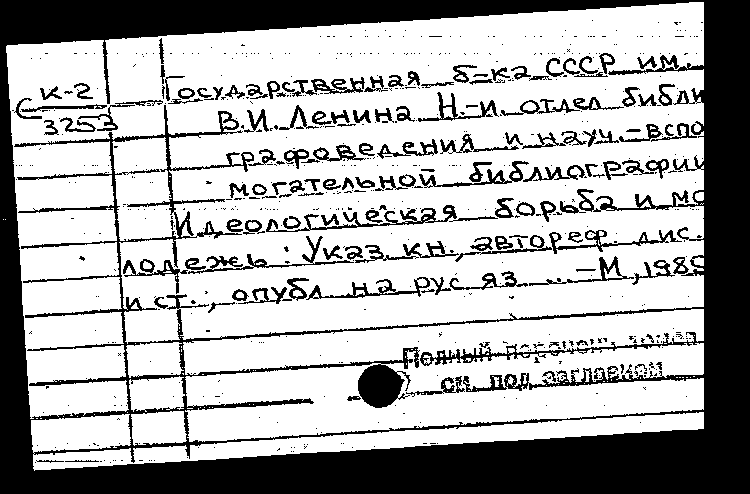 С К-2
3253
Государственная б-ка СССР им.
В.И. Ленина Н.-и. отдел библи
графоведения и науч.-вспо
могательной библиографии
Идеологическая борьба и мо
лодежь : Указ. кн., автореф. дис.
и ст., опубл на рус яз ... - М, 1985
Полный перечень томов
см. под заглавием